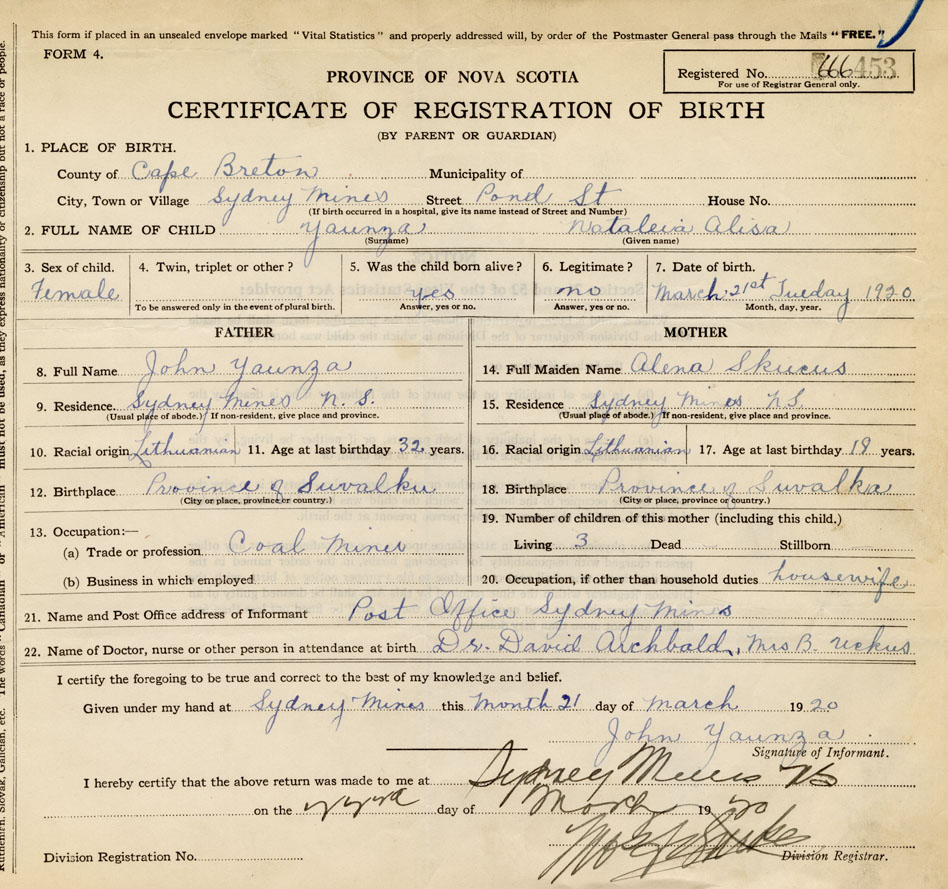 This form if placed in an unsealed envelope marked "Vital Statistics" and properly addressed will, by order of the Postmaster General pass through the Mails "FREE."
FORM 4.
PROVINCE OF NOVA SCOTIA
Registered No. 666 453
For use of Registrar General only.
CERTIFICATE OF REGISTRATION OF BIRTH
(BY PARENT OR GUARDIAN)
1. PLACE OF BIRTH.
County of Cape Breton Municipality of
City, Town or Village Sydney Mines Street Pond St House No.
(If birth occurred in a hospital, give its name instead of Street and Number)
2. FULL NAME OF CHILD Yaunza Nataleia Alisa
(Surname) (Given name)
3. Sex of child. 4. Twin, triplet or other? 5. Was the child born alive? 6. Legitimate? 7. Date of birth.
Female yes no March 21st Tueday 1920
To be answered only in the event of plural birth. Answer, yes or no. Answer, yes or no. Month, day, year.
FATHER MOTHER
8. Full Name John Yaunza 14. Full Maiden Name Alena Skucus
9. Residence. Sydney Mines N. S. 15. Residence Sydney Mines N.S.
(Usual place of abode.) If non-resident, give place and province. (Usual place of abode.) If non-resident, give place and province.
10. Racial origin Lithuanian 11. Age at last birthday 32 years. 16. Racial origin Lithuanian 17. Age at last birthday 19 years.
12. Birthplace Province of Suvalku 18. Birthplace Province of Suvalka
(City or place, province or country.) (City or place, province or country.)
19. Number of children of this mother (including this child.)
13. Occupation:—
(a) Trade or profession Coal Miner Living 3 Dead Stillborn
(b) Business in which employed 20. Occupation, if other than household duties housewife
21. Name and Post Office address of Informant Post Office Sydney Mines
22. Name of Doctor, nurse or other person in attendance at birth Dr. David Archbald, Mrs B. Uckus
I certify the foregoing to be true and correct to the best of my knowledge and belief.
Given under my hand at Sydney Mines this Month 21 day of March 1920
John Yaunza
Signature of Informant.
I hereby certify that the above return was made to me at Sydney Mines NS
on the day of March 1920
Division Registration No. Division Registrar.